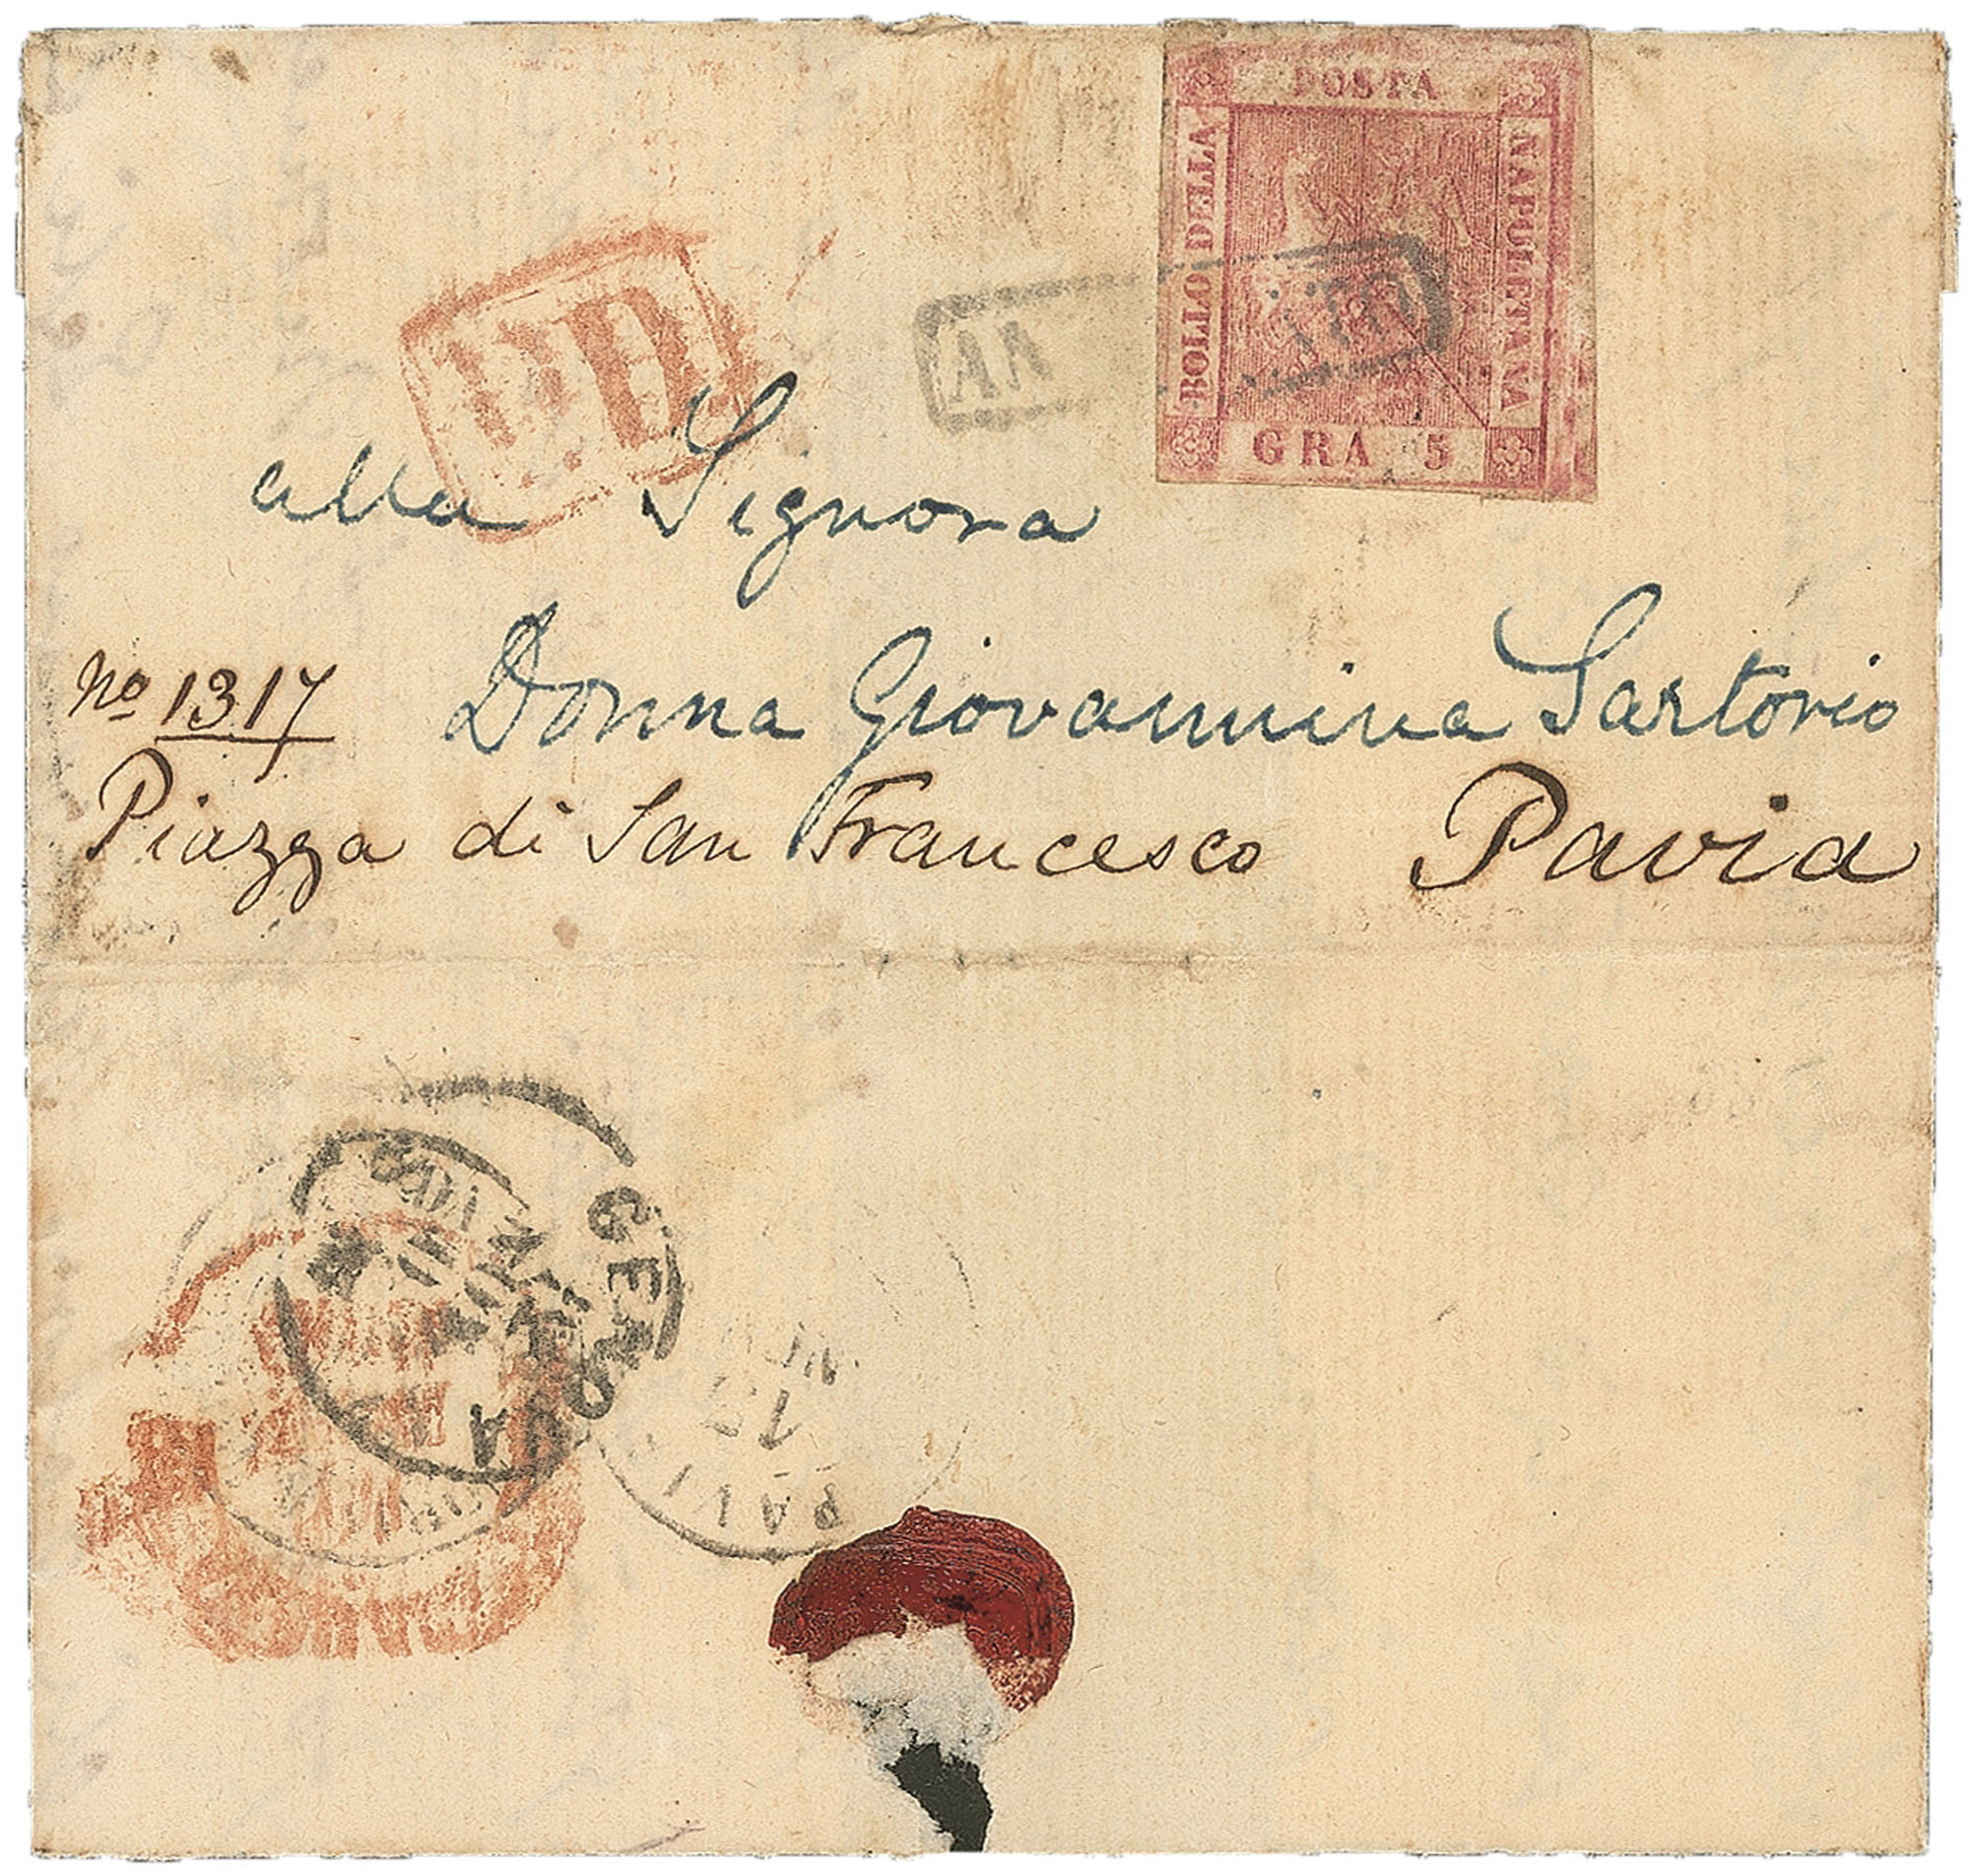 POSTA
BOLLO DELLA
NAPOLETANA
GRA 5
PD
alla Signora
Donna Giovannina Sartorio
No 1317
Piazza di San Francesco Pavia
GENOVA
12
PAVI